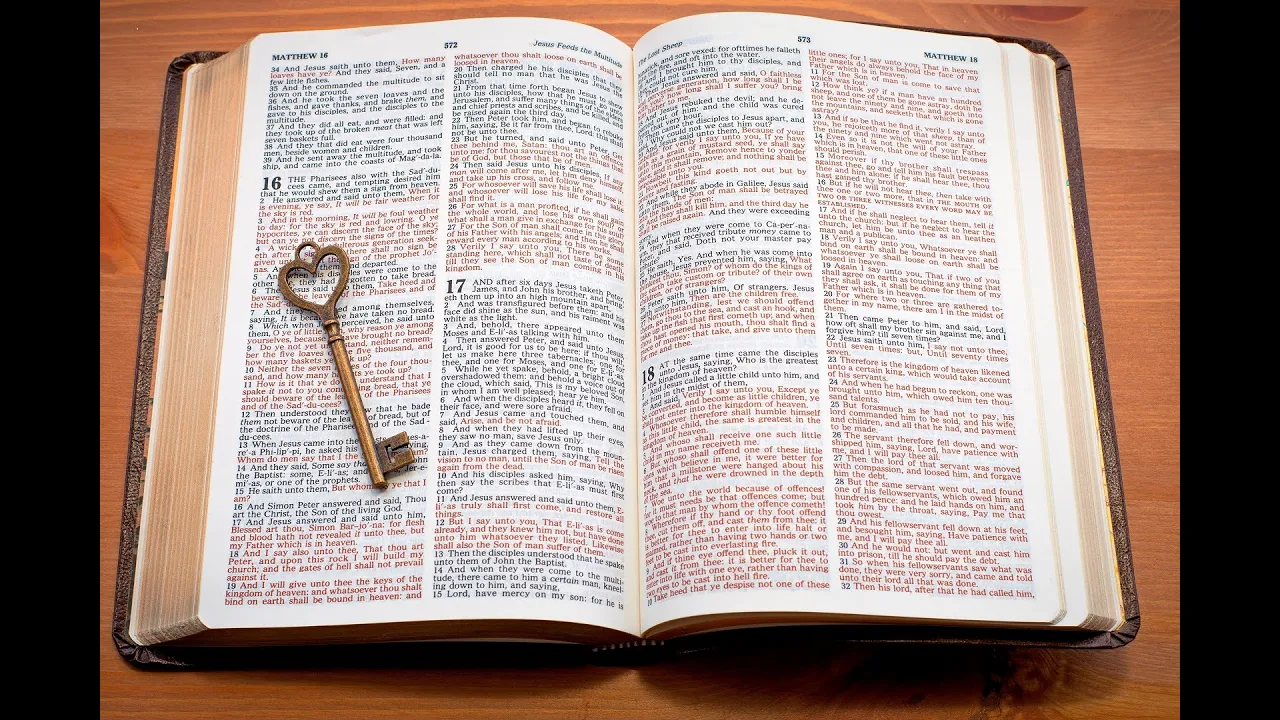 MATTHEW 16
572
Jesus Feeds the Multitude
34 And Jesus saith unto them, How many
loaves have ye? And they said, Seven, and a
few little fishes.
35 And he commanded the multitude to sit
down on the ground.
36 And he took the seven loaves and the
fishes, and gave thanks, and brake them and
gave to his disciples, and the disciples to the
multitude.
37 And they did all eat, and were filled: and
they took up of the broken meat that was left
seven baskets full.
38 And they that did eat were four thousand
men, beside women and children.
39 And he sent away the multitude, and took
ship, and came into the coasts of Mag'-da-la.
16 THE Pharisees also with the Sad'-du-
cees came, and tempting desired him
that he would shew them a sign from heaven.
2 He answered and said unto them, When it
is evening, ye say, It will be fair weather: for
the sky is red.
3 And in the morning, It will be foul weather
to day: for the sky is red and lowring. O ye
hypocrites, ye can discern the face of the sky;
but can ye discern the signs of the times?
4 A wicked generation seek-
eth after there shall no sign be
given unto of the prophet Jo-
nas. And them, and departed.
5 And ples were come to the
other had forgotten to take bread.
6 The said unto them, Take heed and
beware the leaven of the Pharisees and of
the Sad
7 And they among themselves,
saying, It is have taken no bread.
8 Which when perceived, he said unto
them, O ye of little why reason ye among
yourselves, because ye have brought no bread?
9 Do ye not yet understand, neither remem-
ber the five loaves five thousand, and
how many baskets ye took up?
10 Neither the seven of the four thou-
sand, and how many ye took up?
11 How is it that ye do understand that I
spake it not to you bread, that ye
should beware of the leaven of the Pharisees
and of the Sad-du-cees?
12 Then understood they how that he bade
them not beware of the leaven of bread, but of
the doctrine of the Pharisees and of the Sad-
du-cees.
13 When Jesus came into the
re'-a Phi-lip'-pi, he asked his saying,
Whom do men say that I the
14 And they said, Some say that the
Baptist: some, E-li'-as; and Jer-e-
mi'-as, or one of the prophets.
15 He saith unto them, But whom ye that I
am?
16 And Simon Peter answered and said, Thou
art the Christ, the Son of the living God.
17 And Jesus answered and said unto him,
Blessed art thou, Simon Bar-jo'-na: for flesh
and blood hath not revealed it unto thee, but
my Father which is in heaven.
18 And I say also unto thee, That thou art
Peter, and upon this rock I will build my
church; and the gates of hell shall not prevail
against it.
19 And I will give unto thee the keys of the
kingdom of heaven: and whatsoever thou shalt
bind on earth shall be bound in heaven: and
whatsoever thou shalt loose on earth shall be
loosed in heaven.
20 Then charged he his disciples that they
should tell no man that he was Jesus the
Christ.
21 From that time forth began Jesus to shew
unto his disciples, how that he must go unto
Jerusalem, and suffer many things of the elders
and chief priests and scribes, and be killed, and
be raised again the third day.
22 Then Peter took him, and began to rebuke
him, saying, Be it far from thee, Lord: this shall
not be unto thee.
23 But he turned, and said unto Peter, Get
thee behind me, Satan: thou art an offence
unto me: for thou savourest not the things that
be of God, but those that be of men.
24 Then said Jesus unto his disciples, If any
man will come after me, let him deny himself,
and take up his cross, and follow me.
25 For whosoever will save his life shall lose it:
and whosoever will lose his life for my sake
shall find it.
26 For what is a man profited, if he shall gain
the whole world, and lose his own soul? or
what shall a man give in exchange for his soul?
27 For the Son of man shall come in the glory
of his Father with his angels; and then he shall
reward every man according to his works.
28 Verily I say unto you, There be some
standing here, which shall not taste of death,
till they see the Son of man coming in his
kingdom.
17 AND after six days Jesus taketh Peter,
James, and John his brother, and bring-
eth them up into an high mountain apart,
2 And was transfigured before them: and his
face did shine as the sun, and his raiment was
white as the light.
3 And, behold, there appeared unto them
Moses and E-li'-as talking with him.
4 Then answered Peter, and said unto Jesus,
Lord, it is good for us to be here: if thou wilt,
let us make here three tabernacles; one for
thee, and one for Moses, and one for E-li'-as.
5 While he yet spake, behold, a bright cloud
overshadowed them: and behold a voice out of
the cloud, which said, This is my beloved Son,
in whom I am well pleased; hear ye him.
6 And when the disciples heard it, they fell on
their face, and were sore afraid.
7 And Jesus came and touched them, and
said, Arise, and be not afraid.
8 And when they had lifted up their eyes,
they saw no man, save Jesus only.
9 And as they came down from the moun-
tain, Jesus charged them, saying, Tell the
vision to no man, until the Son of man be risen
again from the dead.
10 And his disciples asked him, saying, Why
then say the scribes that E-li'-as must first
come?
11 And Jesus answered and said unto them, E-
li'-as truly shall first come, and restore all
things.
12 But I say unto you, That E-li'-as is come
already, and they knew him not, but have done
unto him whatsoever they listed. Likewise
shall also the Son of man suffer of them.
13 Then the disciples understood that he spake
unto them of John the Baptist.
14 And when they were come to the multi-
tude, there came to him a certain man, kneel-
ing down to him, and saying,
15 Lord, have mercy on my son: for he is
Lost Sheep
573
MATTHEW 18
and sore vexed: for ofttimes he falleth
fire, and oft into the water.
brought him to thy disciples, and
not cure him.
Jesus answered and said, O faithless
generation, how long shall I be
how long shall I suffer you? bring
to me.
Jesus rebuked the devil; and he de-
out of him: and the child was cured
hour.
came the disciples to Jesus apart, and
could not we cast him out?
Jesus said unto them, Because of your
verily I say unto you, If ye have
as a grain of mustard seed, ye shall say
mountain, Remove hence to yonder
shall remove; and nothing shall be
unto you.
this kind goeth not out but by
fasting.
while they abode in Galilee, Jesus said
The Son of man shall be betrayed
hands of men:
they shall kill him, and the third day he
raised again. And they were exceeding
And when they were come to Ca-per'-na-
that received tribute money came to
and said, Doth not your master pay
saith, Yes. And when he was come into
Jesus prevented him, saying, What
Simon? of whom do the kings of
take custom or tribute? of their own
or of strangers?
saith unto him, Of strangers. Jesus
him, Then are the children free.
Notwithstanding, lest we should offend
to the sea, and cast an hook, and
up the fish that first cometh up; and when
opened his mouth, thou shalt find a
of money: that take, and give unto them
me and thee.
18 AT the same time came the disciples
unto Jesus, saying, Who is the greatest
in the kingdom of heaven?
2 And Jesus called a little child unto him, and
him in the midst of them,
And said, Verily I say unto you, Except ye
converted, and become as little children, ye
not enter into the kingdom of heaven.
Whosoever therefore shall humble himself
this little child, the same is greatest in the
kingdom of heaven.
And whoso shall receive one such little
child in my name receiveth me.
But whoso shall offend one of these little
which believe in me, it were better for
that a millstone were hanged about his
and that he were drowned in the depth
of the sea.
unto the world because of offences!
it must needs be that offences come; but
that man by whom the offence cometh!
Wherefore if thy hand or thy foot offend
cut them off, and cast them from thee: it
for thee to enter into life halt or
maimed, rather than having two hands or two
to be cast into everlasting fire.
And if thine eye offend thee, pluck it out,
and cast it from thee: it is better for thee to
into life with one eye, rather than having
two eyes to be cast into hell fire.
10 Take heed that ye despise not one of these
little ones; for I say unto you, That in heaven
their angels do always behold the face of my
Father which is in heaven.
11 For the Son of man is come to save that
which was lost.
12 How think ye? if a man have an hundred
sheep, and one of them be gone astray, doth he
not leave the ninety and nine, and goeth into
the mountains, and seeketh that which is gone
astray?
13 And if so be that he find it, verily I say unto
you, he rejoiceth more of that sheep, than of
the ninety and nine which went not astray.
14 Even so it is not the will of your Father
which is in heaven, that one of these little ones
should perish.
15 Moreover if thy brother shall trespass
against thee, go and tell him his fault between
thee and him alone: if he shall hear thee, thou
hast gained thy brother.
16 But if he will not hear thee, then take with
thee one or two more, that in THE MOUTH OF
TWO OR THREE WITNESSES EVERY WORD MAY BE
ESTABLISHED.
17 And if he shall neglect to hear them, tell it
unto the church: but if he neglect to hear the
church, let him be unto thee as an heathen
man and a publican.
18 Verily I say unto you, Whatsoever ye shall
bind on earth shall be bound in heaven: and
whatsoever ye shall loose on earth shall be
loosed in heaven.
19 Again I say unto you, That if two of you
shall agree on earth as touching any thing that
they shall ask, it shall be done for them of my
Father which is in heaven.
20 For where two or three are gathered to-
gether in my name, there am I in the midst of
them.
21 Then came Peter to him, and said, Lord,
how oft shall my brother sin against me, and I
forgive him? till seven times?
22 Jesus saith unto him, I say not unto thee,
Until seven times: but, Until seventy times
seven.
23 Therefore is the kingdom of heaven likened
unto a certain king, which would take account
of his servants.
24 And when he had begun to reckon, one was
brought unto him, which owed him ten thou-
sand talents.
25 But forasmuch as he had not to pay, his
lord commanded him to be sold, and his wife,
and children, and all that he had, and payment
to be made.
26 The servant therefore fell down, and wor-
shipped him, saying, Lord, have patience with
me, and I will pay thee all.
27 Then the lord of that servant was moved
with compassion, and loosed him, and forgave
him the debt.
28 But the same servant went out, and found
one of his fellowservants, which owed him an
hundred pence: and he laid hands on him, and
took him by the throat, saying, Pay me that
thou owest.
29 And his fellowservant fell down at his feet,
and besought him, saying, Have patience with
me, and I will pay thee all.
30 And he would not: but went and cast him
into prison, till he should pay the debt.
31 So when his fellowservants saw what was
done, they were very sorry, and came and told
unto their lord all that was done.
32 Then his lord, after that he had called him,